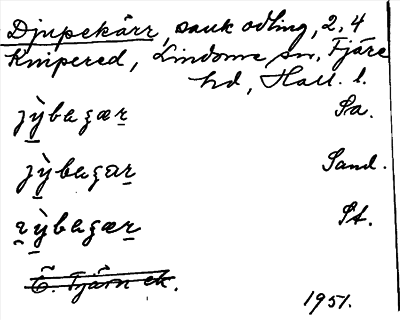 Djupekärr, sank odling, 2, 4
Knipered, Lindome sn, Fjäre
hd, Hall. l.
jỳ̠bagær̠ Sa.
jỳ̠bagar̠ Sand.
ỳ̠bagær̠ St.
Tjärn ek.
1951.